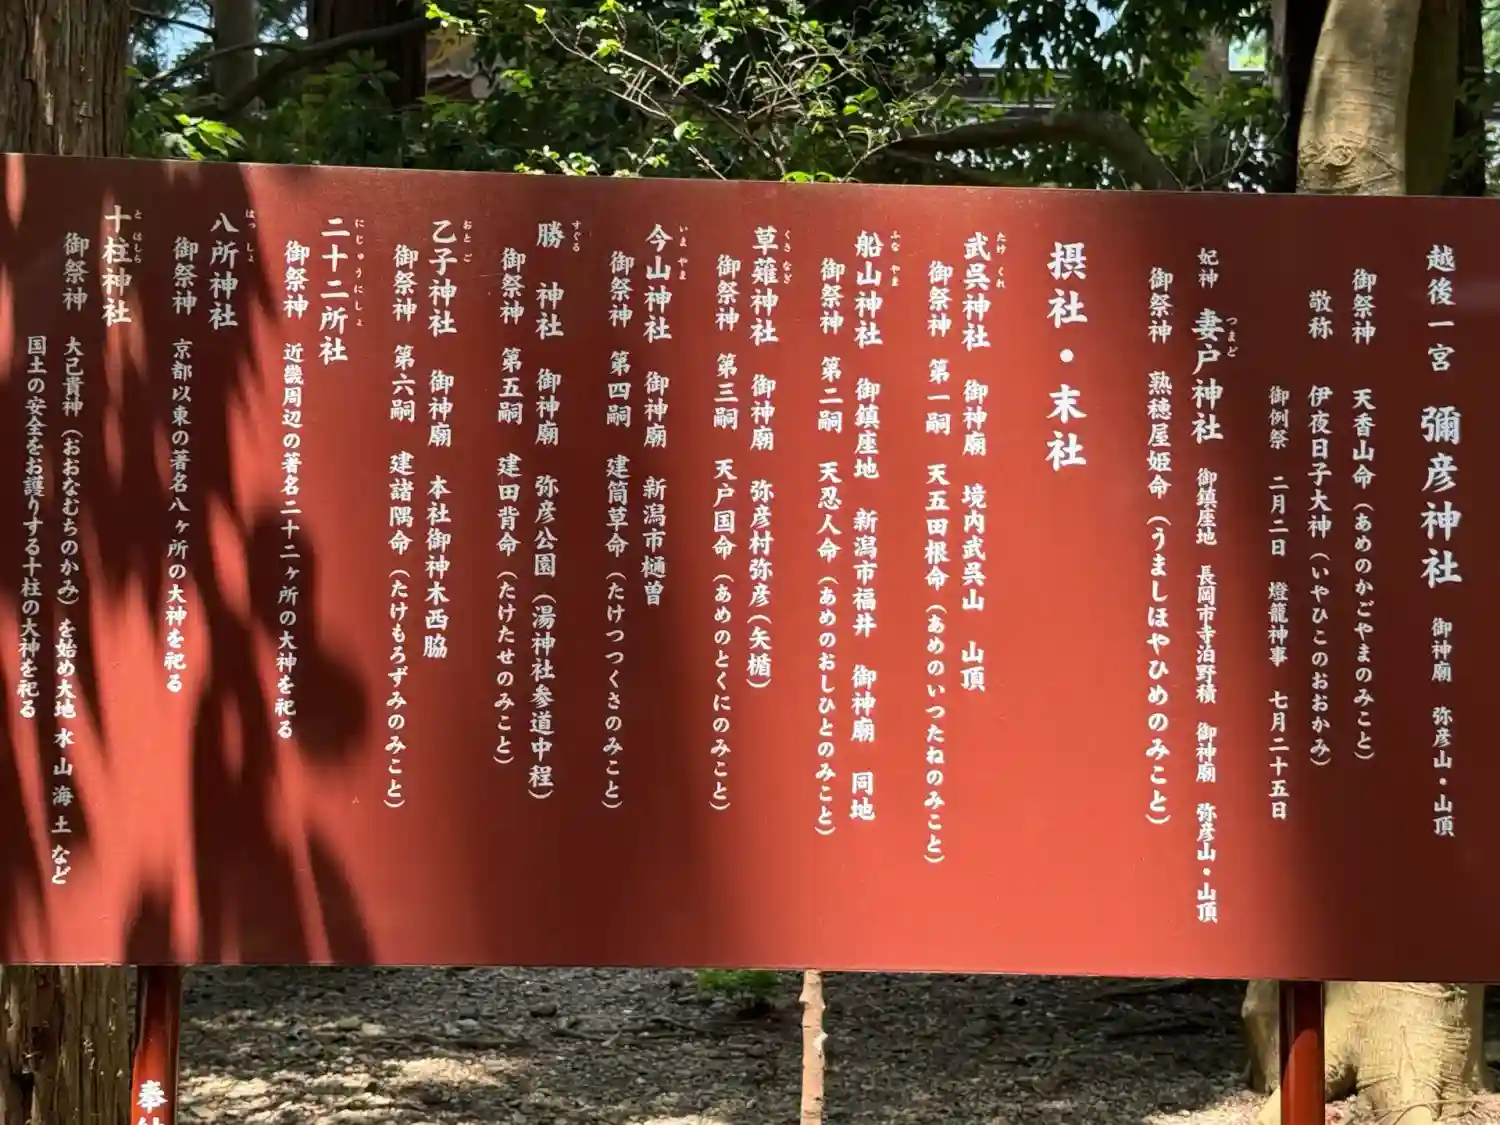 越後一宮 彌彦神社 御神廟 弥彦山・山頂
御祭神 天香山命(あめのかごやまのみこと)
敬称 伊夜日子大神(いやひこのおおかみ)
御例祭 二月二日 燈籠神事 七月二十五日
妃神 妻戸神社 御鎮座地 長岡市寺泊野積 御神廟 弥彦山・山頂
つまど
御祭神 熟穂屋姫命(うましほやひめのみこと)
摂社・末社
武呉神社 御神廟 境内武呉山 山頂
たけくれ
御祭神 第一嗣 天五田根命(あめのいつたねのみこと)
船山神社 御鎮座地 新潟市福井 御神廟 同地
ふなやま
御祭神 第二嗣 天忍人命(あめのおしひとのみこと)
草薙神社 御神廟 弥彦村弥彦(矢楯)
くさなぎ
御祭神 第三嗣 天戸国命(あめのとくにのみこと)
今山神社 御神廟 新潟市樋曽
いまやま
御祭神 第四嗣 建筒草命(たけつつくさのみこと)
勝 神社 御神廟 弥彦公園(湯神社参道中程)
すぐる
御祭神 第五嗣 建田背命(たけたせのみこと)
乙子神社 御神廟 本社御神木西脇
おとご
御祭神 第六嗣 建諸隅命(たけもろずみのみこと)
二十二所社
にじゅうにしょ
御祭神 近畿周辺の著名二十二ヶ所の大神を祀る
八所神社
はっしょ
御祭神 京都以東の著名八ヶ所の大神を祀る
十柱神社
とはしら
御祭神 大己貴神(おおなむちのかみ)を始め大地 水 山 海 土 など
国土の安全をお護りする十柱の大神を祀る
奉